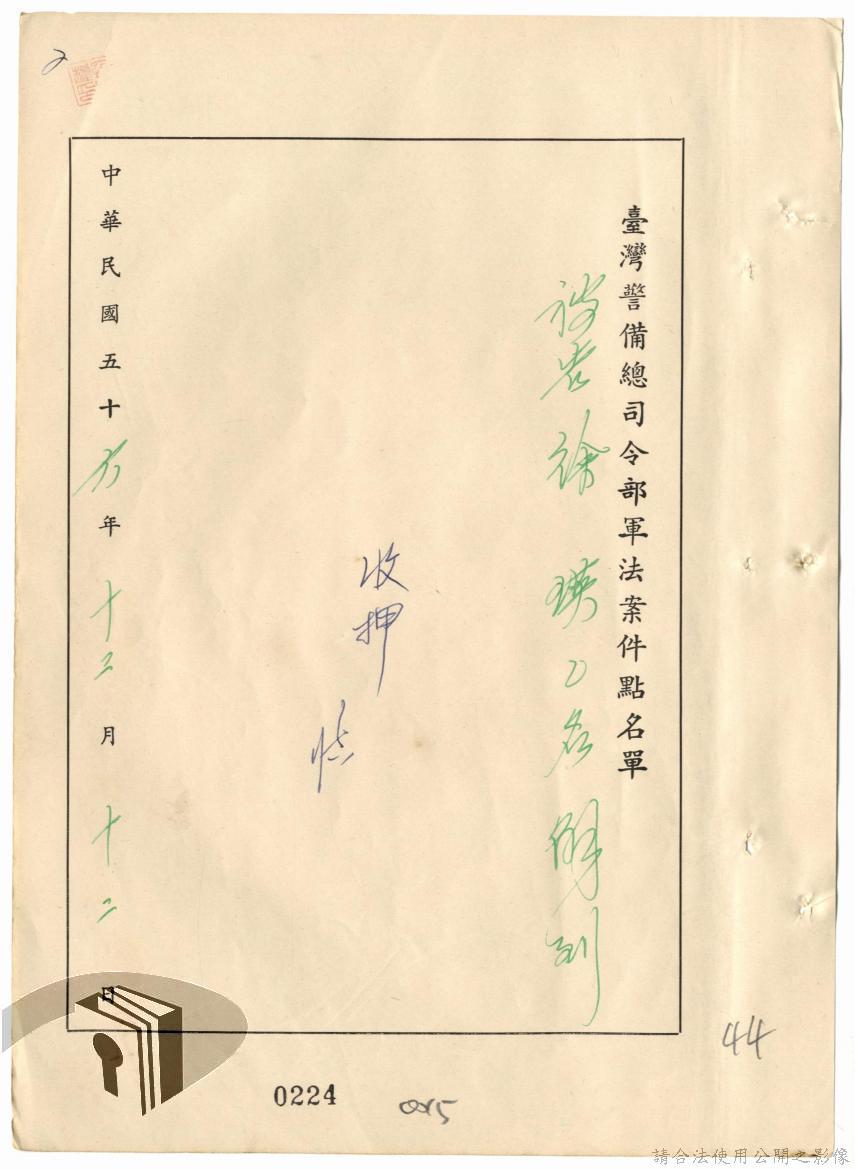 臺灣警備總司令部軍法案件點名單
被告徐瑛乙名解到
收押
中華民國五十六年十二月十二日
0224
44
請合法使用公開之影像